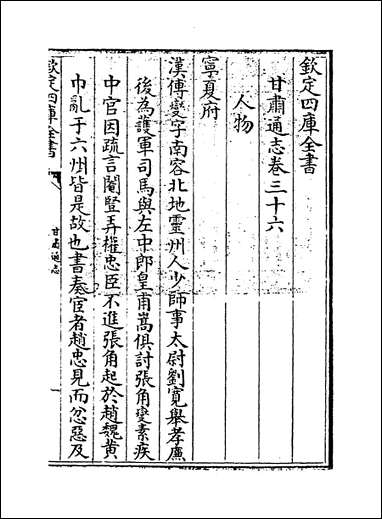 欽定四庫全書
甘肅通志卷三十六
人物
寧夏府
漢傅燮字南容北地靈州人少師事太尉劉寬舉孝廉
後為護軍司馬與左中郎皇甫嵩俱討張角燮素疾
中官因疏言閹豎弄權忠臣不進張角起於趙魏黄
巾亂于六州皆是故也書奏宦者趙忠見而忿惡及
欽定四庫全書
甘肅通志
一